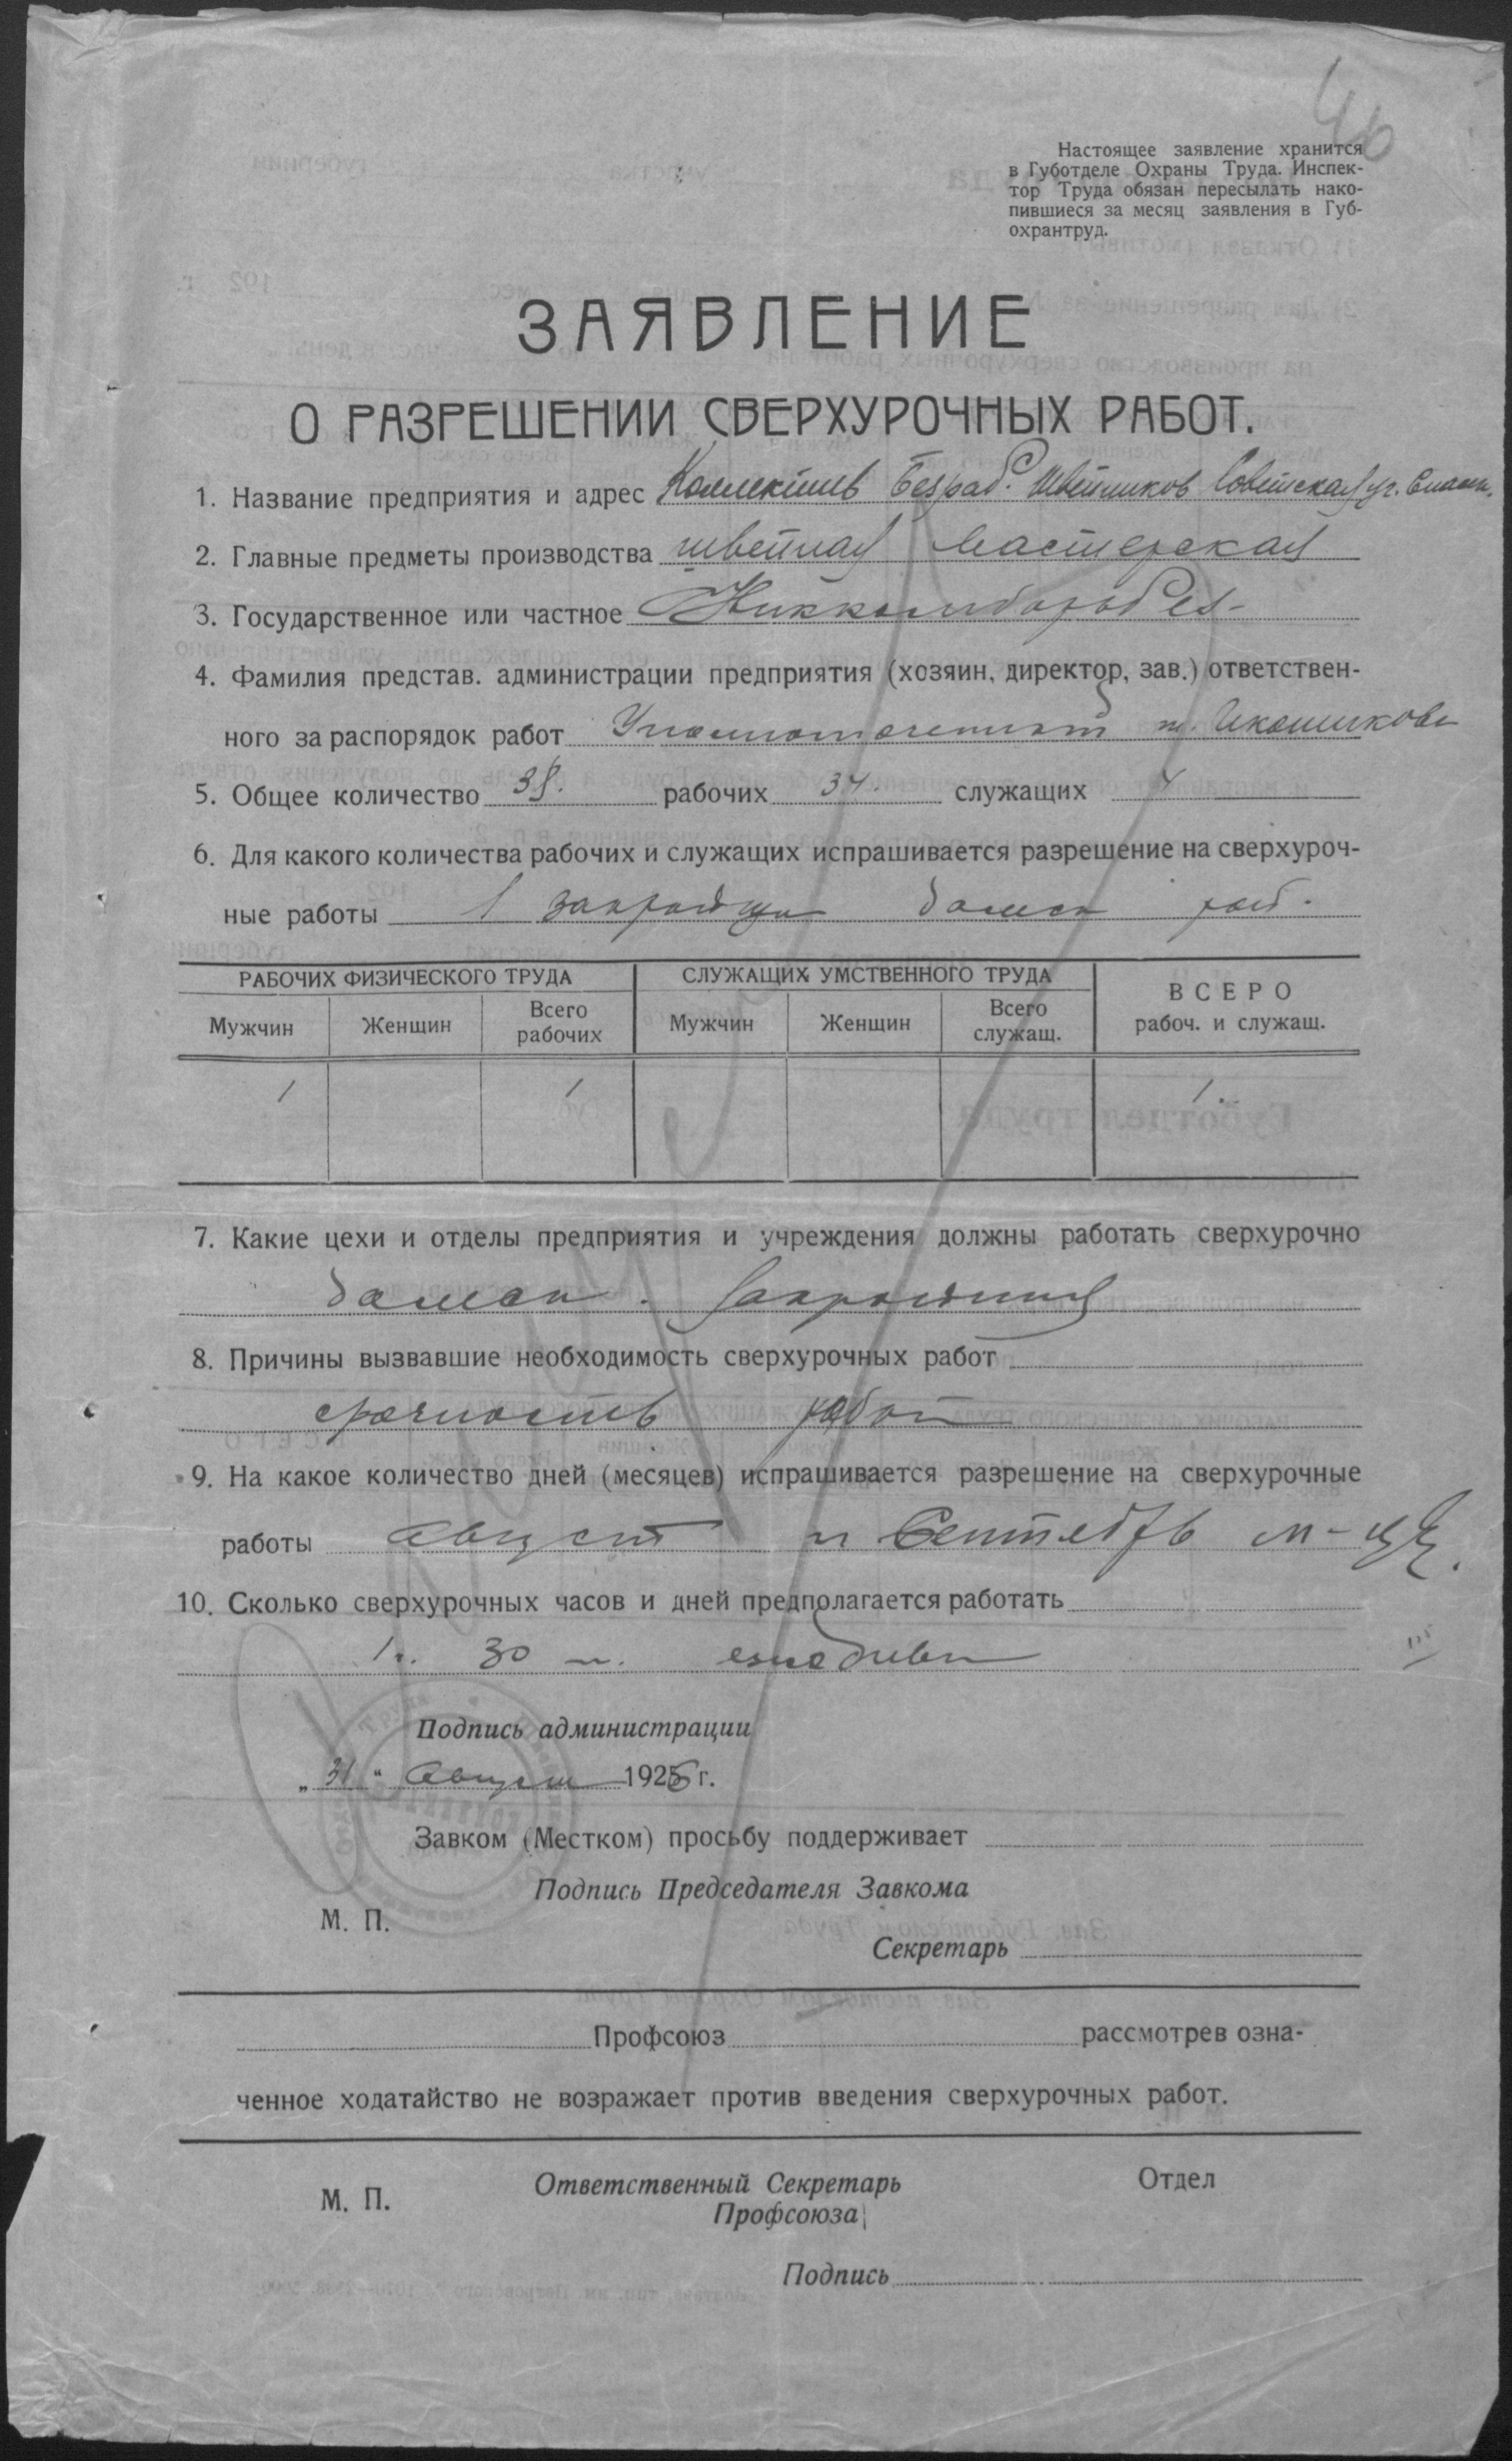 46
Настоящее заявление хранится
в Губотделе Охраны Труда. Инспек-
тор Труда обязан пересылать нако-
пившиеся за месяц заявления в Губ-
охрантруд.
ЗАЯВЛЕНИЕ
О РАЗРЕШЕНИИ СВЕРХУРОЧНЫХ РАБОТ.
1. Название предприятия и адрес Коллектив Безраб. Швейников Советская уг. Спасск.
2. Главные предметы производства швейная мастерская
3. Государственное или частное
4. Фамилия представ. администрации предприятия (хозяин, директор, зав.) ответствен-
ного за распорядок работ Уполномоченный т.
5. Общее количество 38. рабочих 34. служащих 4
6. Для какого количества рабочих и служащих испрашивается разрешение на сверхуроч-
ные работы 1 закройщик дамск раб.
РАБОЧИХ ФИЗИЧЕСКОГО ТРУДА СЛУЖАЩИХ УМСТВЕННОГО ТРУДА ВСЕРО
рабоч. и служащ.
Мужчин Женщин Всего рабочих Мужчин Женщин Всего служащ.
1 1 1.
7. Какие цехи и отделы предприятия и учреждения должны работать сверхурочно
дамск. закройщик
8. Причины вызвавшие необходимость сверхурочных работ
срочность работ
9. На какое количество дней (месяцев) испрашивается разрешение на сверхурочные
работы август и Сентябрь м-цы.
10. Сколько сверхурочных часов и дней предполагается работать
1 ч. 30 м. ежедневн
Подпись администрации
„31" Август 1926 г.
Завком (Местком) просьбу поддерживает
Подпись Председателя Завкома
М. П.
Секретарь
Профсоюз рассмотрев озна-
ченное ходатайство не возражает против введения сверхурочных работ.
М. П. Ответственный Секретарь Отдел
Профсоюза
Подпись